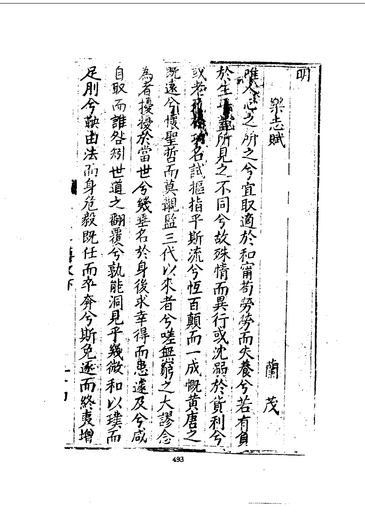 明
樂志賦
蘭茂
唯人心之所之兮宜取適於和甯苟勞勞而失養兮若有負
於生所見之不同兮故殊情而異行或沈溺於貨利兮
或老名試摳指乎斯流兮恆百顛而一成慨黃唐之
既遠兮懷聖哲而莫覯監三代以來者兮嗟無窮之大謬念
為者擾擾於當世兮幾垂名於身後求幸得而患遽及兮咸
自取而誰咎紛世道之翻覆兮孰能洞見乎幾微和以璞而
足刖兮鞅由法而身危毅既任而卒奔兮斯免逐而終夷增
493